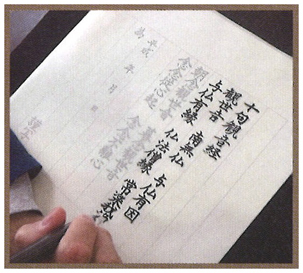 十句観音経
観世音 南無仏 与仏有因
与仏有縁 仏法僧縁 常楽我浄
朝念観世音 暮念観世音
念念従心起 念念不離心
平成 年 月 日
為